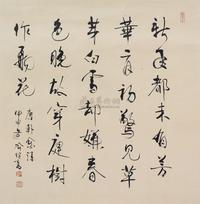 新年都未有芳
華二月初驚見草
芽白雪却嫌春
色晚故穿庭樹
作飛花
唐韓愈詩
甲申